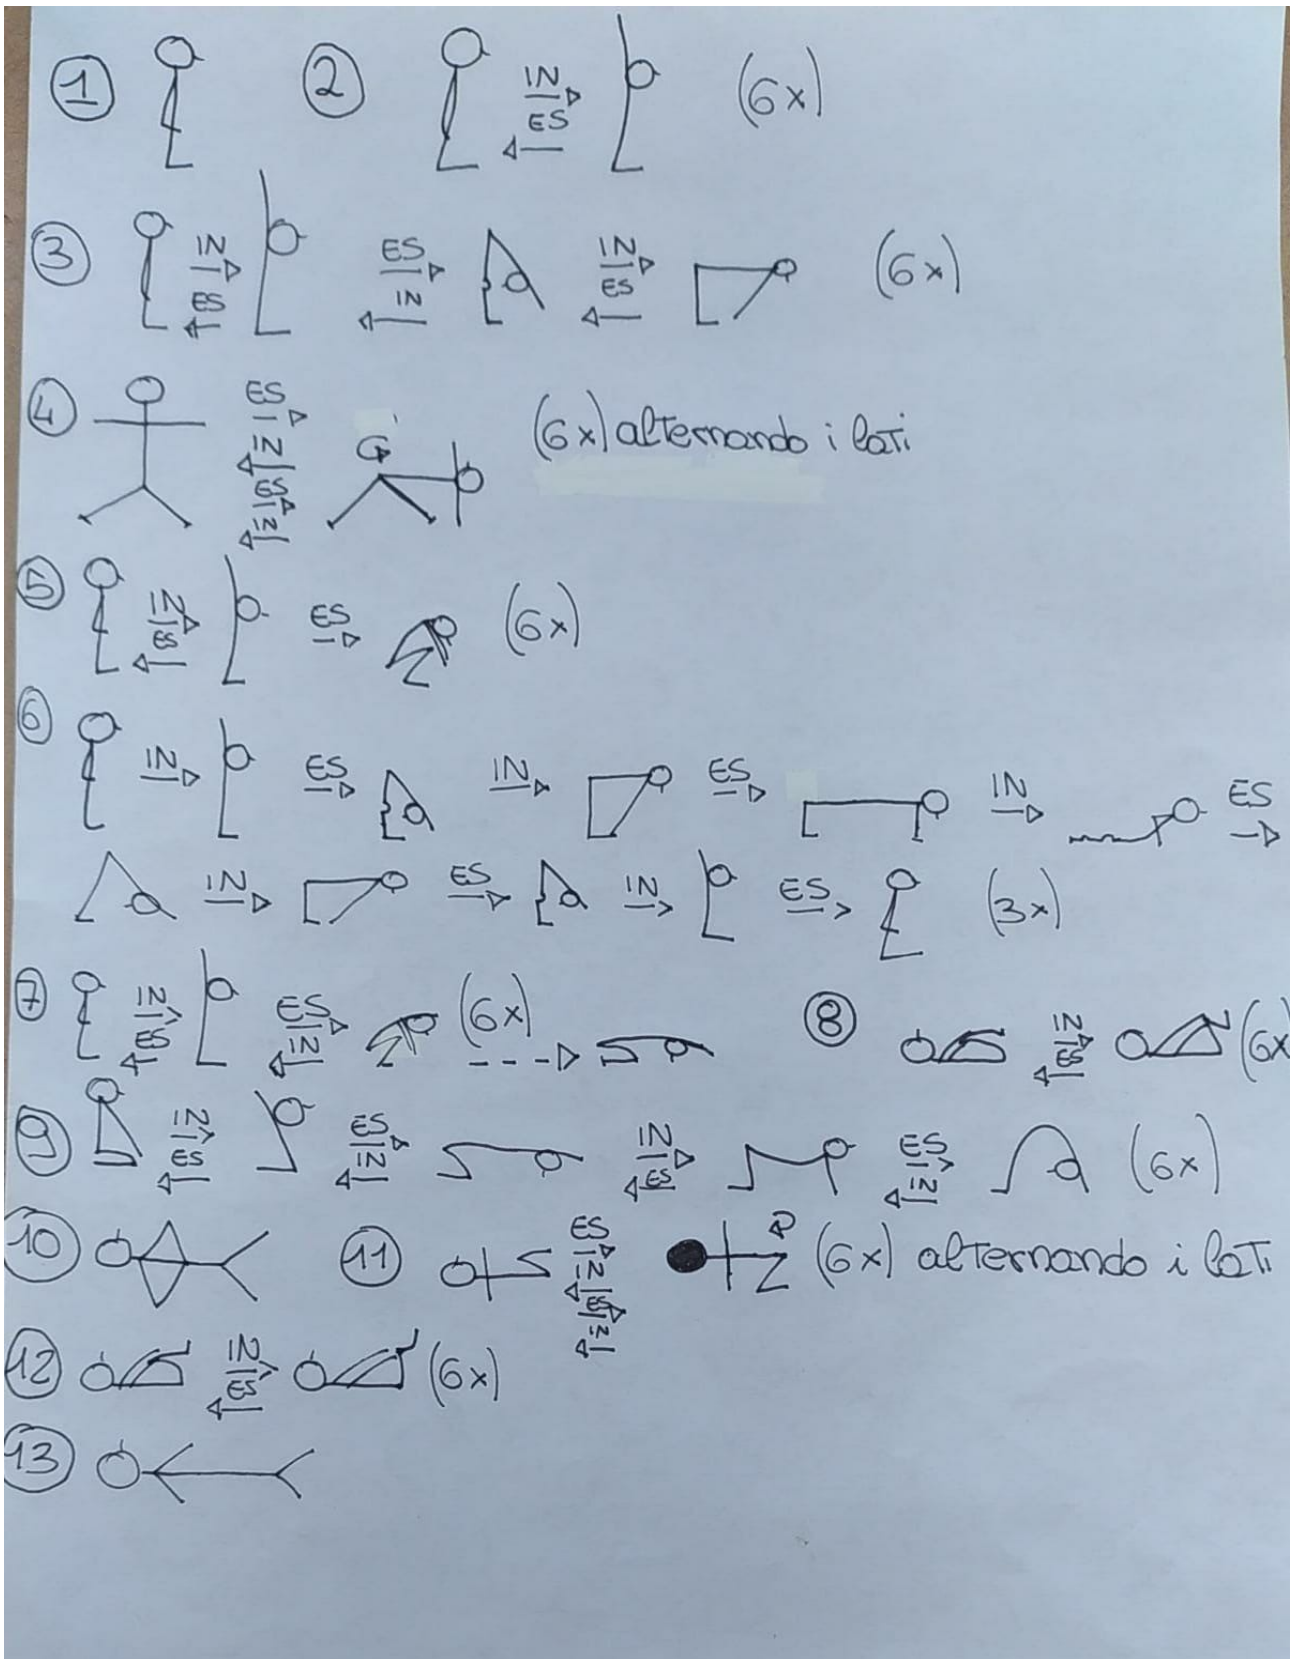 1 2 IN ES (6x)
3 IN ES ES IN IN ES (6x)
4 ES IN ES IN (6x) alternando i lati
5 IN ES ES (6x)
6 IN ES IN ES IN ES
IN ES IN ES (3x)
7 IN ES ES IN (6x) 8 IN ES (6x
9 IN ES ES IN IN ES ES IN (6x)
10 11 ES IN ES IN (6x) alternando i lati
12 IN ES (6x)
13